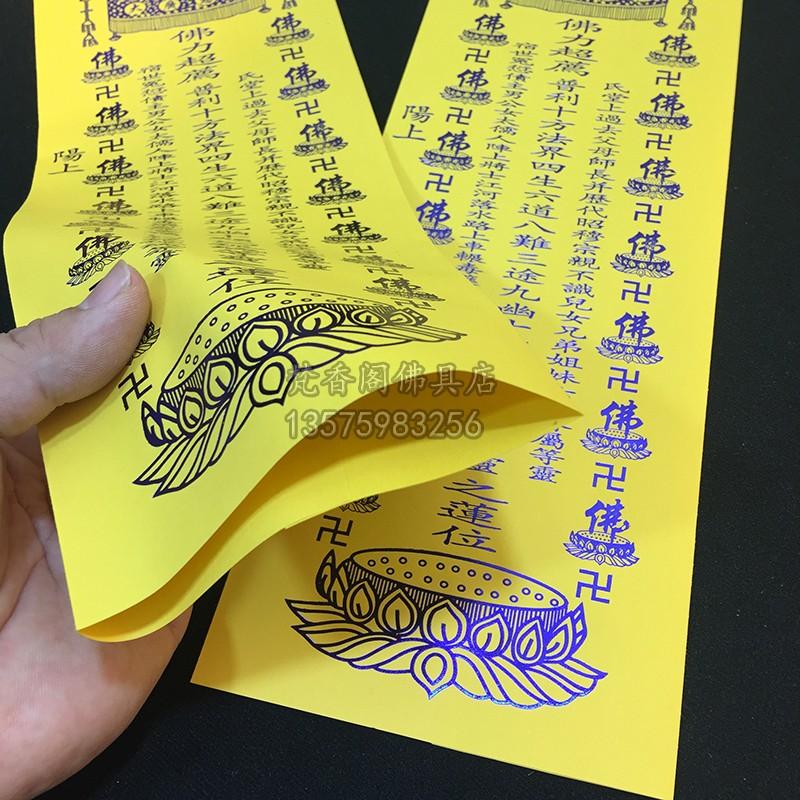 佛卍佛卍佛卍佛卍佛卍佛卍佛卍
氏堂上過去父母師長并歷代昭穆宗親不識兒女兄弟姐妹
屬等靈
佛力超薦 普利十方法界四生六道八難三途九幽七
靈之蓮位
宿世冤愆債主男公女夫儒人陣上將士江河落水路上車輾毒
佛卍佛卍佛卍佛卍佛
卍
陽上
佛卍佛卍佛卍佛卍
氏堂上過去父母師長并歷代昭穆宗親不識兒女
佛力超薦 普利十方法界四生六道八難三
蓮位
宿世冤愆債主男公女夫儒人陣上將士江河落水
佛卍佛卍佛卍佛卍
佛
卍
陽上
梵香阁佛具店
13575983256